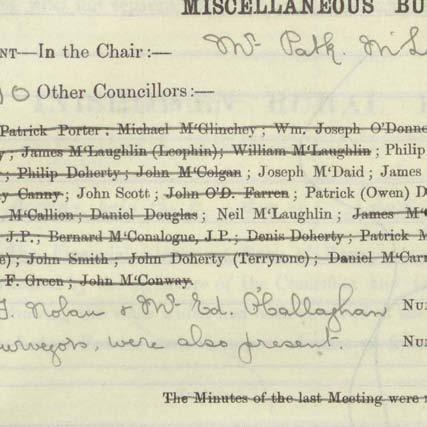 MISCELLANEOUS BU
NT—In the Chair:— Mr Patk. McL
10 Other Councillors:—
Patrick Porter; Michael M'Glinchey; Wm. Joseph O'Donne
y; James M'Laughlin (Leophin); William M'Laughlin; Philip
; Philip Doherty; John M'Colgan; Joseph M'Daid; James
y Canny; John Scott; John O'D. Farren; Patrick (Owen) D
M'Callion; Daniel Douglas; Neil M'Laughlin; James M'C
J.P.; Bernard M'Conalogue, J.P.; Denis Doherty; Patrick M
e); John Smith; John Doherty (Terryrone); Daniel M'Car
F. Green; John M'Conway.
J. Nolan & Mr Ed. O'Callaghan Nu
urveyors, were also present. Nu
The Minutes of the last Meeting were r